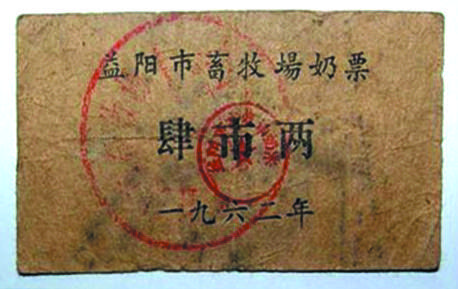 益阳市畜牧場奶票
肆市两
一九六二年